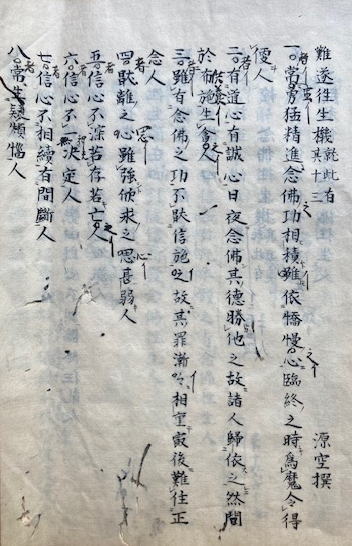 難遂往生機就此有其十三　源空撰
一者常勇猛精進念佛功相積雖依憍慢心臨終之時為魔令得
便人
二者有道心有誠心日夜念佛其德勝他之故諸人歸依之然間
於布施生貪人
三者雖有念佛之功不 信施之故其罪漸々相重寂後難住正
念人
四者 離之心雖強欣求之思甚弱人
五者信心不深若存若亡人
六者信心不決定人
七者信心不相續有間斷人
八者常生疑煩惱人